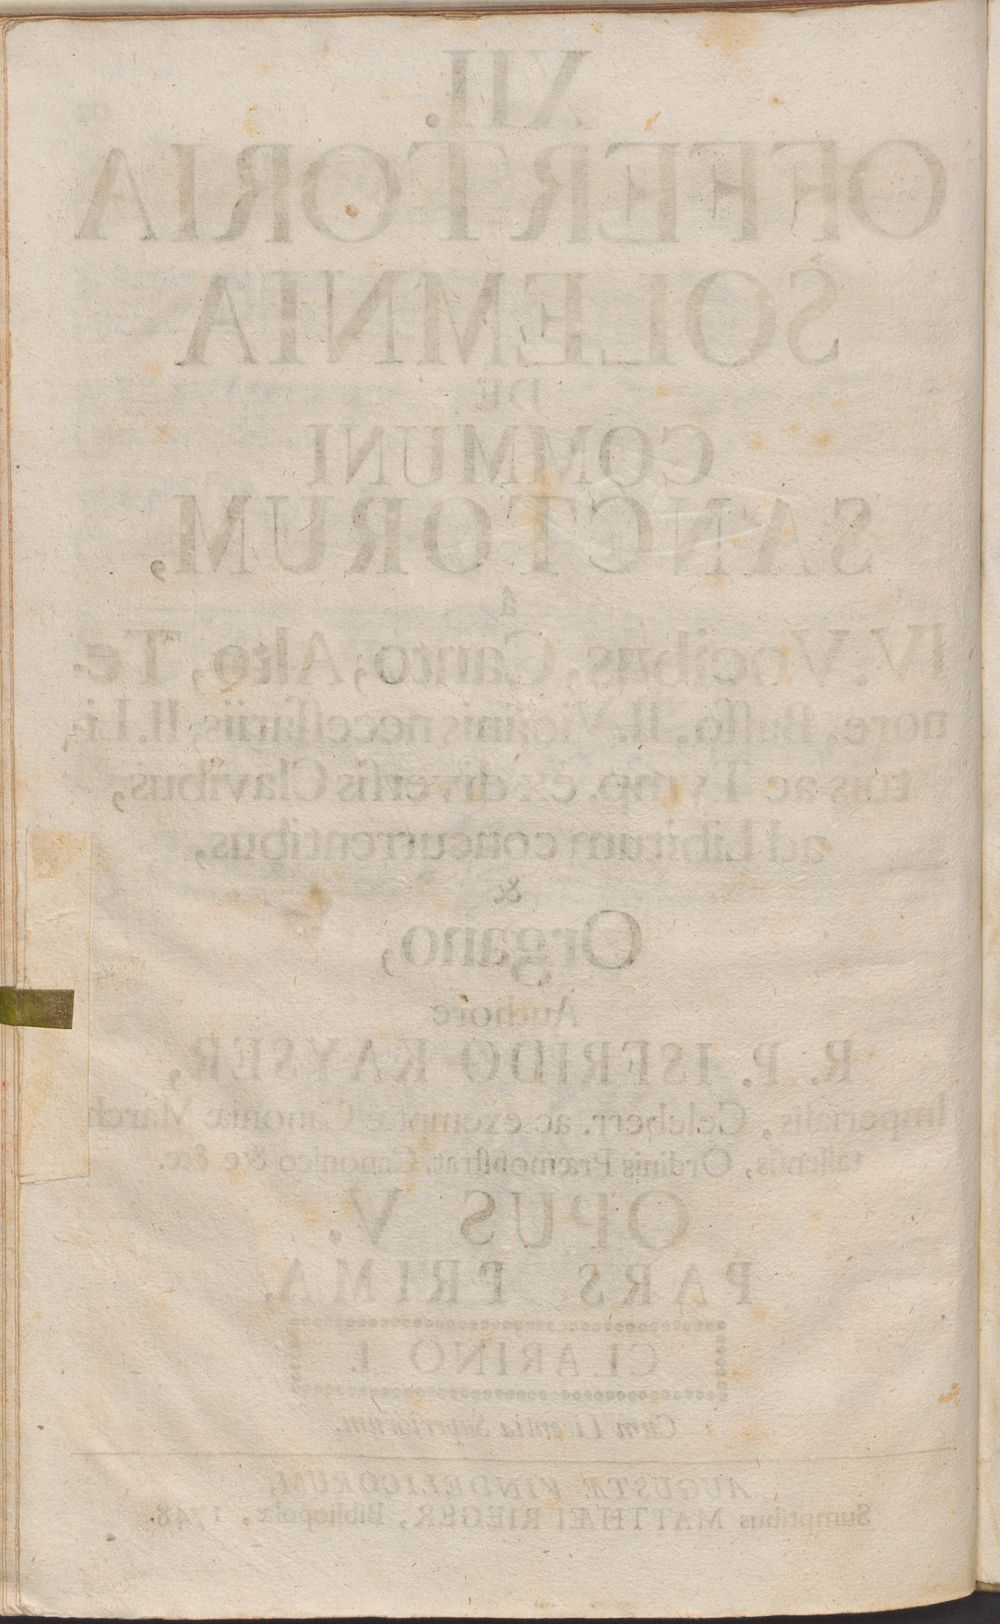 XII.
OFFERTORIA
SOLEMNIA
DE
COMMUNI
SANCTORUM,
â
IV. Vocibus, Canto, Alto, Te-
nore, Basso. II. Violinis necessariis, II. Li-
tuis ac Tymp. ex diversis Clavibus,
ad Libitum concurrentibus,
&
Organo,
Authore
R. P. ISFRIDO KAYSER,
Imperialis, Celeberr. ac exemptæ Canoniæ March-
tallensis, Ordinis Præmonstrat. Canonico &c &c.
OPUS V.
PARS PRIMA.
CLARINO I.
Cum Licentia Superiorum.
AUGUSTÆ VINDELICORUM,
Sumptibus MATTHÆI RIEGER, Bibliopolæ, 1748.